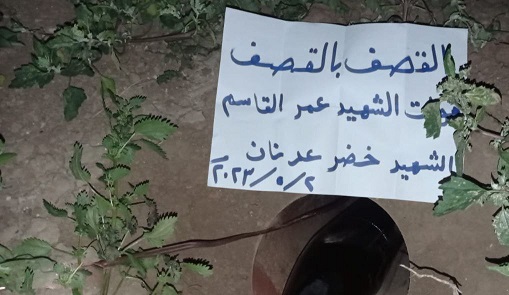 القصف بالقصف
قوات الشهيد عمر القاسم
الشهيد خضر عدنان
٢٠٢٣/٥/٢